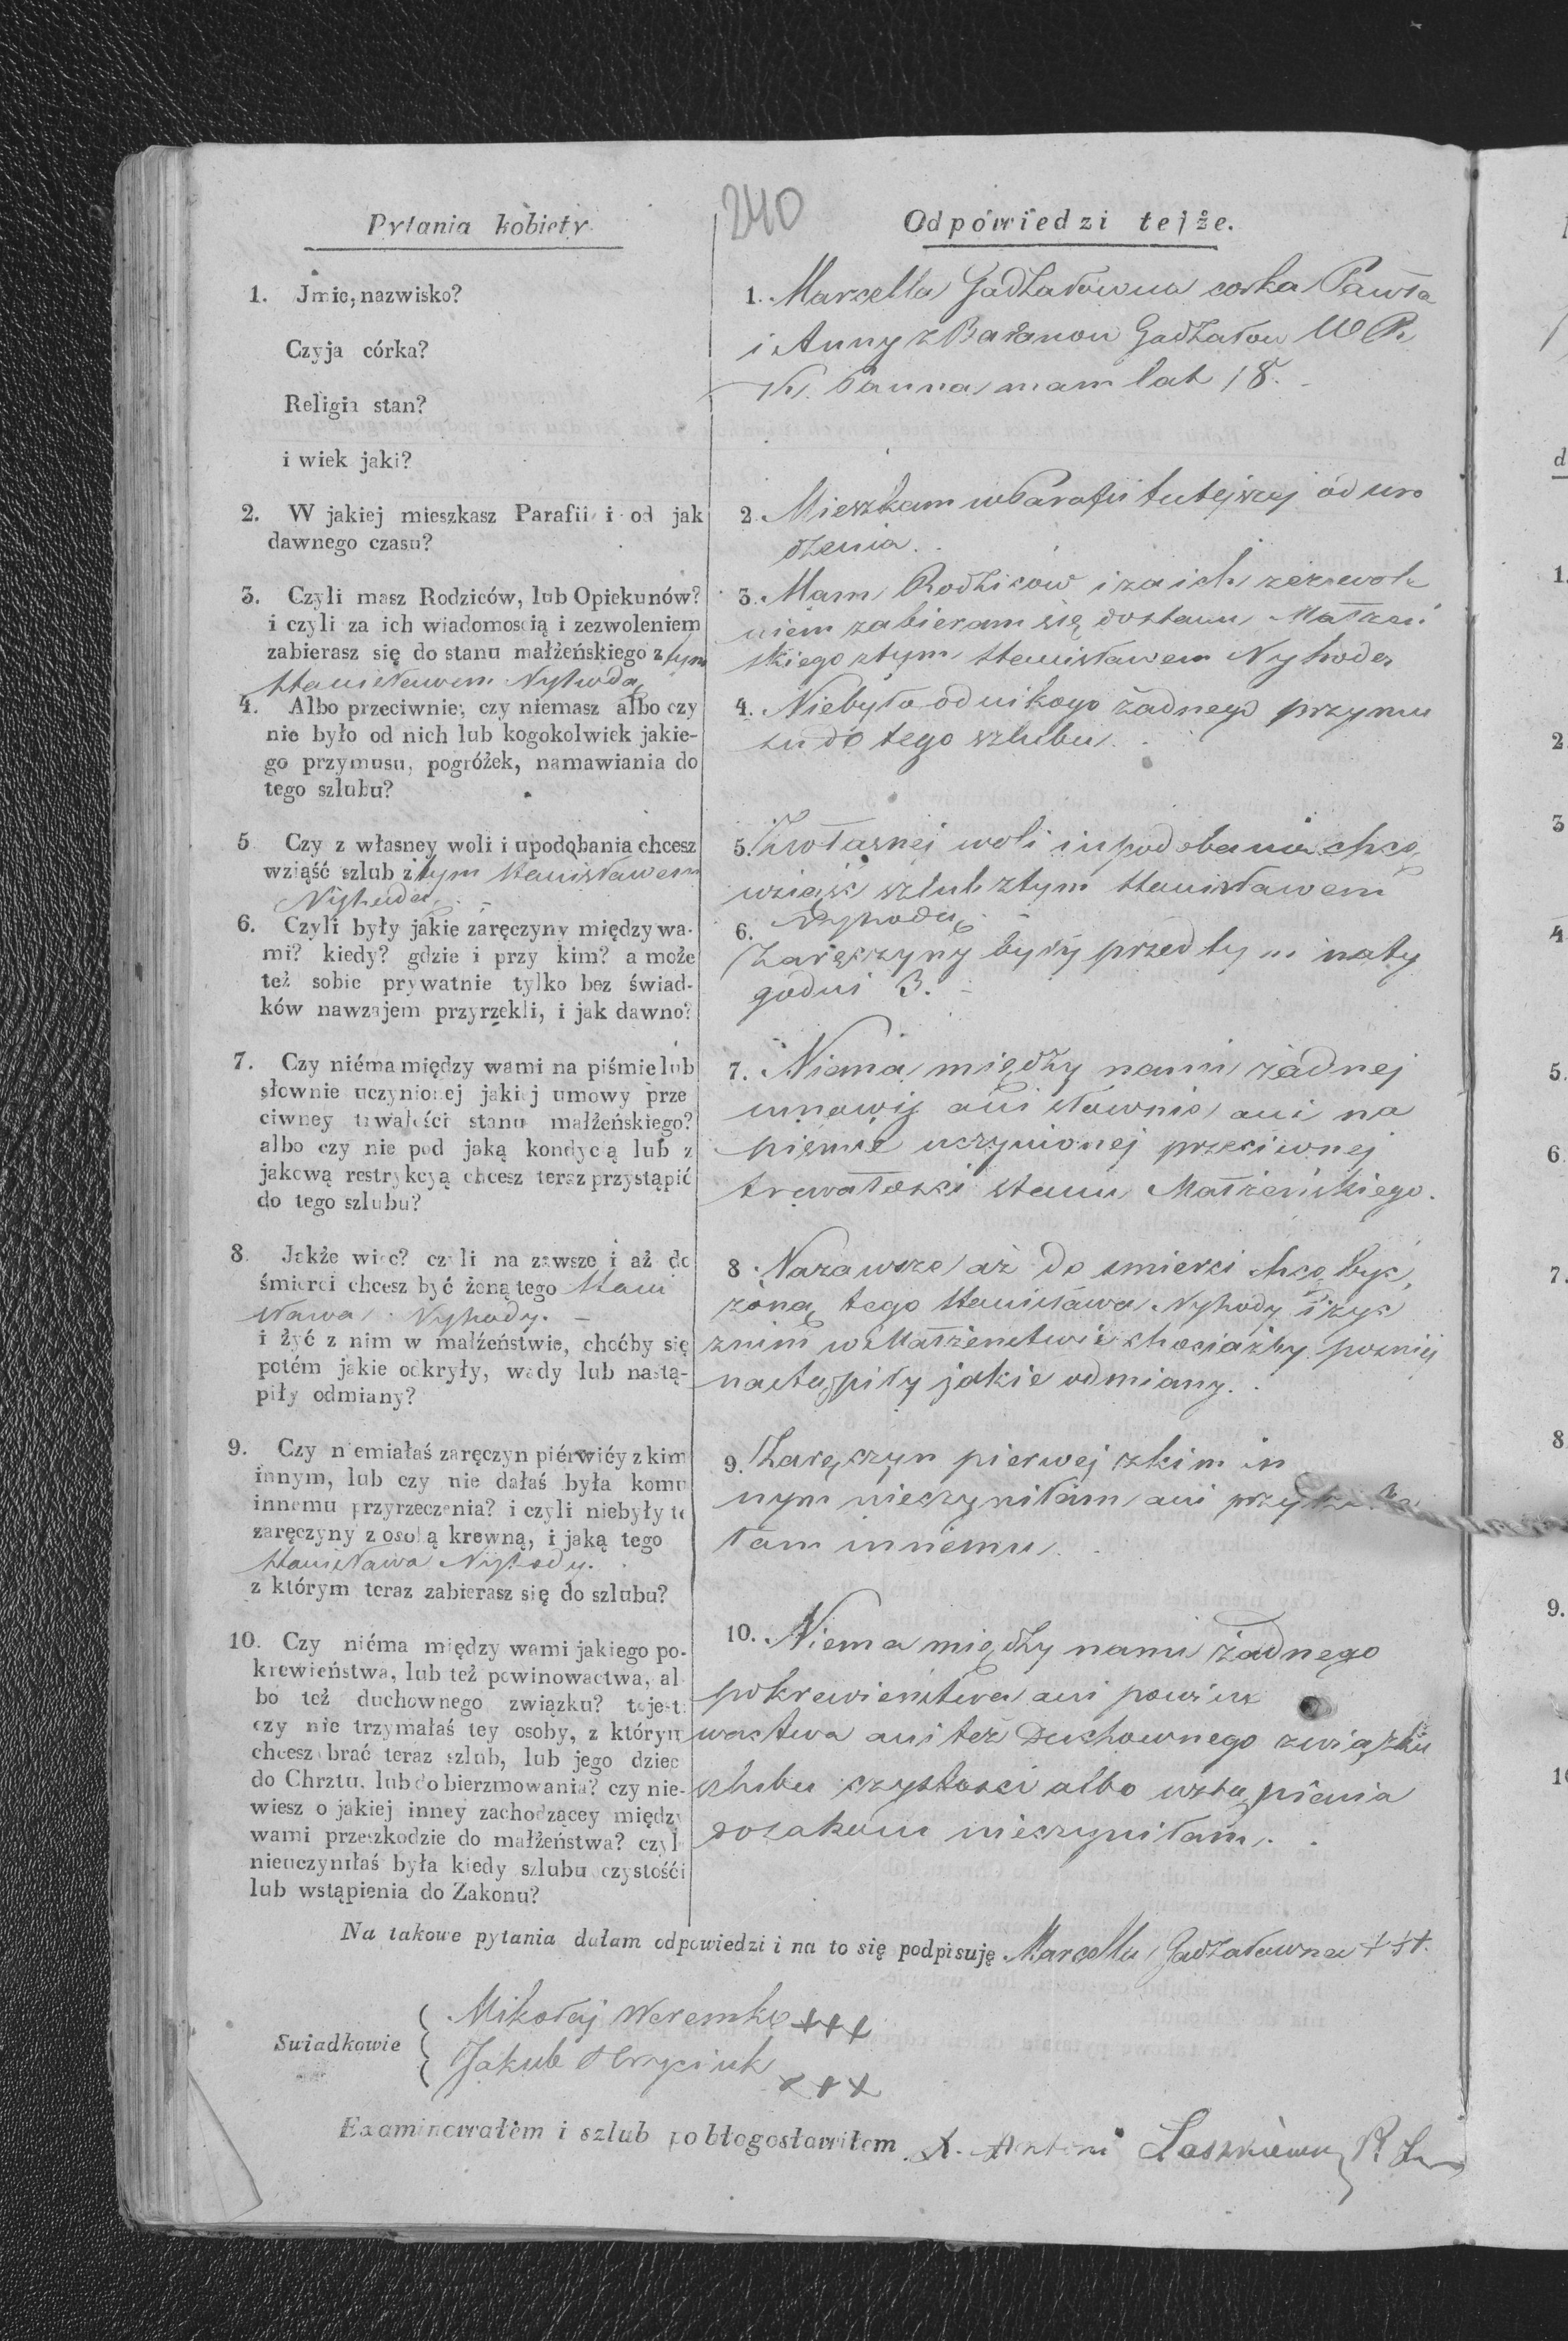 240
Pytania kobiety.
Odpowiedzi tejże.
1. Jmie, nazwisko?
Czyja córka?
Religia stan?
i wiek jaki?
1. Marcella Gadzałowna corka Pawła
i Anny z Baranow Gadzałow W R
K. Panna mam lat 18. -
2. W jakiej mieszkasz Parafii i od jak
dawnego czasu?
2. Mieszkam w Parafii tutejszej od uro
dzenia.
3. Czyli masz Rodziców, lub Opiekunów?
i czyli za ich wiadomoscią i zezwoleniem
zabierasz się do stanu małżeńskiego z tym
Stanisławem Nyhodą
3. Mam Rodzicow i za ich zezwole
niem zabieram się do stanu Małżeń
skiego z tym Stanisławem Nyhodą
4. Albo przeciwnie, czy niemasz albo czy
nie było od nich lub kogokolwiek jakie-
go przymusu, pogróżek, namawiania do
tego szlubu?
4. Niebyło od nikogo żadnego przymu
su do tego szlubu.
5 Czy z własney woli i upodobania chcesz
wziąść szlub z tym Stanisławem
Nyhodą. -
5. Zwłasnej woli i upodobania chcę
wziąść szlub z tym Stanisławem
Nyhodą. -
6. Czyli były jakie zaręczyny między wa-
mi? kiedy? gdzie i przy kim? a może
też sobie prywatnie tylko bez świad-
ków nawzajem przyrzekli, i jak dawno?
6.
Zaręczyny były przed tym na ty
godni 3. -
7. Czy niéma między wami na piśmie lub
słownie uczynionej jakiej umowy prze
ciwney trwałości stanu małżeńskiego?
albo czy nie pod jaką kondycją lub z
jakową restrykcyą chcesz teraz przystąpić
do tego szlubu?
7. Niema między nami żadnej
umowij ani słownie ani na
piśmie uczynionej przeciwnej
trwałosci stanu Małżeńskiego.
8. Jakże więc? czyli na zawsze i aż do
śmierci chcesz być żoną tego Stani
sława Nyhody. -
i żyć z nim w małżeństwie, choćby się
potém jakie odkryły, wady lub nastą-
piły odmiany?
8. Nazawsze aż do smierci chcę być
żoną tego Stanisława Nyhody i żyć
znim w Małżenstwie chociażby pozniej
nastąpiły jakie odmiany.
9. Czy niemiałaś zaręczyn piérwiéy z kim
innym, lub czy nie dałaś była komu
innemu przyrzeczenia? i czyli niebyły te
zaręczyny z osobą krewną, i jaką tego
Stanisława Nyhody.
z którym teraz zabierasz się do szlubu?
9. Zaręczyn pierwej zkim in
nym nieczyniłam ani
łam innemu.
10. Czy niéma między wami jakiego po-
krewieństwa, lub też powinowactwa, al
bo też duchownego związku? to jest:
czy nie trzymałaś tey osoby, z którym
chcesz brać teraz szlub, lub jego dziec
do Chrztu, lub do bierzmowania? czy nie-
wiesz o jakiej inney zachodzącey między
wami przeszkodzie do małżeństwa? czyli
nieuczyniłaś była kiedy szlubu czystośći
lub wstąpienia do Zakonu?
10. Niema między nami żadnego
pokrewieństwa ani powino
wactwa ani też Duchownego związku
szlubu czystosci albo wstąpienia
dozakonu nieczyniłam.
Na takowe pytania dałam odpowiedzi i na to się podpisuję Marcella Gadzałowna +++.
Swiadkowie
Mikołaj Weremko +++
Jakub Hryciuk
+++
Examinowałem i szlub pobłogosławiłem X. Antoni Laskiewicz
d
1.
2
3
4
5.
6
7.
8
9.
10